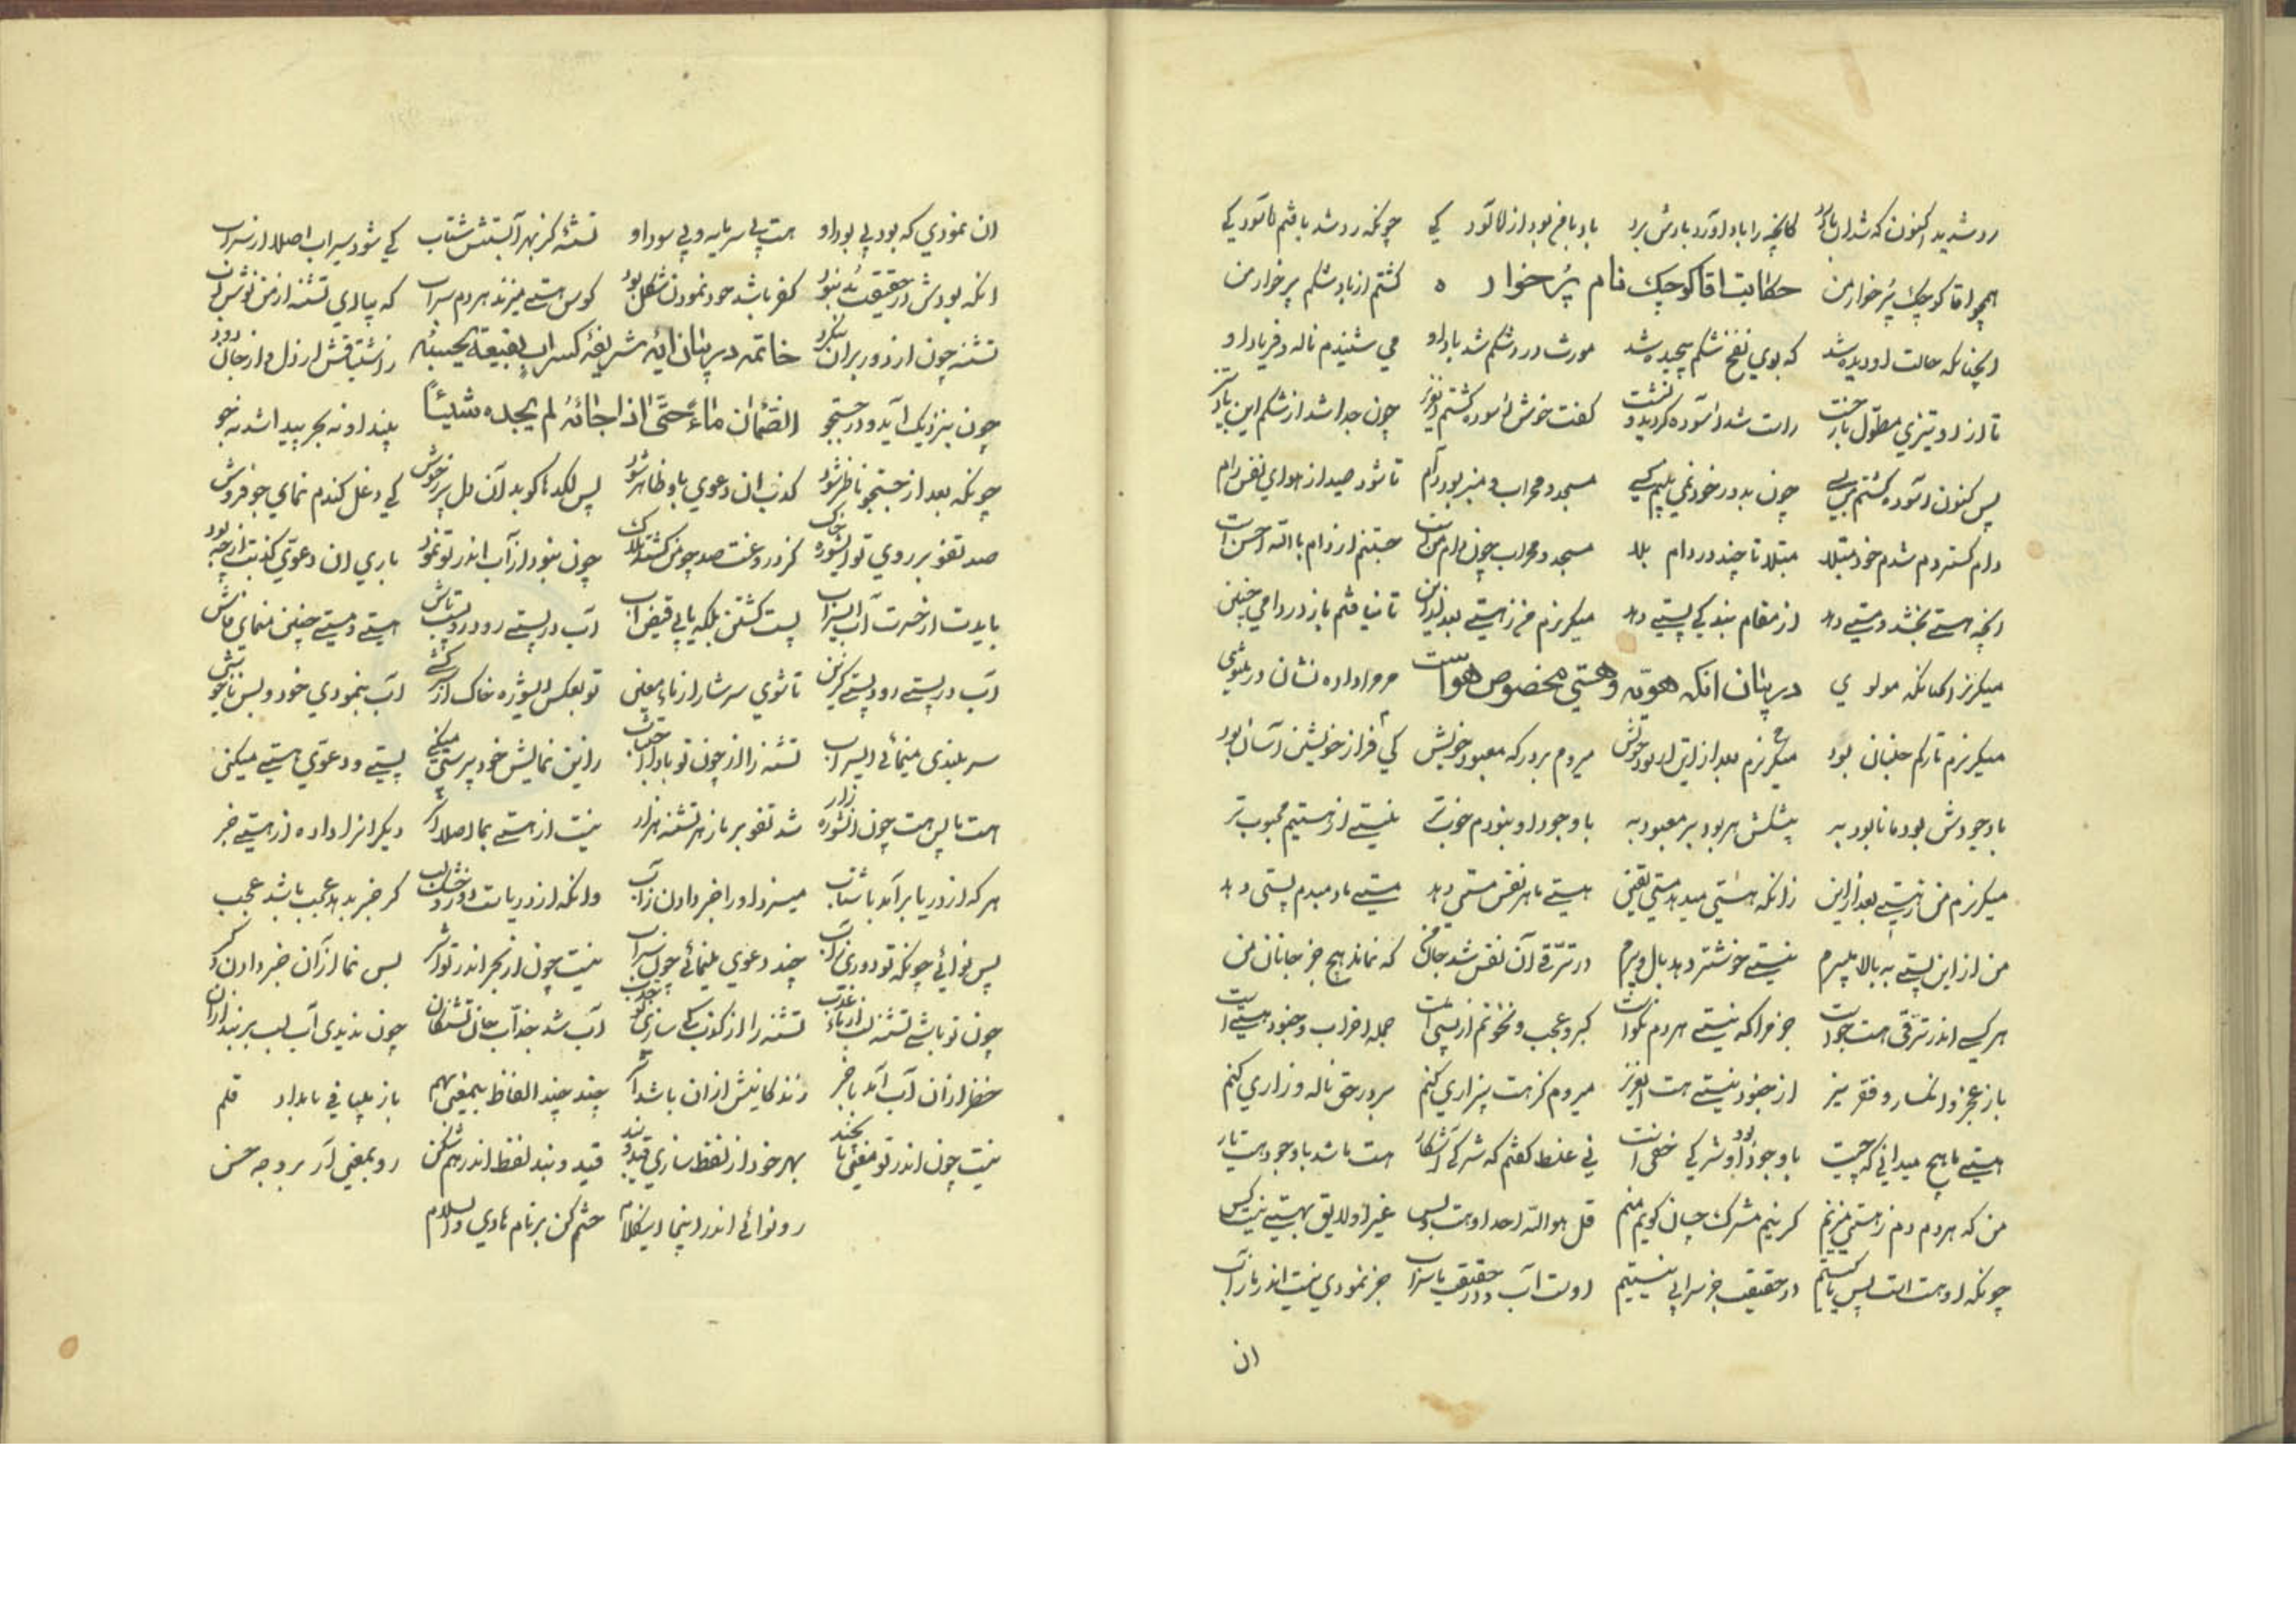 رد شدید اکنون که شد آن باد رد کانچه را باد آورد بادش برد باد با فم بود از لا تود کی چونکه رد شد یافتم لا تود کی
همچو آقا کوچک پُر خوار من حکایت اقا کوچک نام پُرخوار کشتم از باد شکم پر خوار من
انچنانکه حالت او دیده شد که بوی نفخ شکم پیچیده شد مورث درد شکم شد باد او می شنیدم ناله و فریاد او
تا از او تیزی مطوّل راست شد آسوده کردید و نشست کفت خوش آسوده کشتم چون جدا شد از شکم این باد تیز
پس کنون آسوده کشتم چون بدور خود نمی بینم کسی مسجد و محراب و منبر بود دام تا شود صید از هوای نفس رام
دام کستردم شدم خود مبتلا مبتلا تا چند در دام بلا مسجد و محراب چون دام من است جستنم از دام بالله احسن است
انچه هستی بخشد و مستی دهد از مقام بندکی پستی دهد میکریزم من ز هستی بعد از این تا نیافتم باز در دامی چنین
میکریز انچنانکه مولوی در بیان انکه هویّه و هستی مخصوص هواست مر مرا داده نشان در مثنوی
میکریزم تا رکم جنبان بود میکریزم بعد از این از بود خویش میروم بر درکه معبود خویش کی فرار از خویشتن آسان بود
با وجودش بود ما نابود به پیشکش هر بود بر معبود به با وجود او نبودم خوبتر نیستی از هستیم محبوب تر
میکریزم من ز هستی بعد از این زانکه هستی میدهد مستی یقین هستی ما هر نفس مستی دهد مستی ما دمبدم پستی دهد
من از این پستی به بالا میپرم نیستی خوشتر دهد بال و پرم در ترقی آن نفس شد جان من که نماند هیچ جز جانان من
هر کسی اندر ترقی هست جز مرا که نیستی هر دم نکوست کبر و عجب و نخوتم از جمله احزاب و جنود هستی است
باز عجز و انکسار و فقر نیز از جنود نیستی هست ای عزیز میروم کز هست بیزاری کنم بر در حق ناله و زاری کنم
هستی ما هیچ میدانی که چیست با وجود او شرکی خفی است نی غلط کفتم که شرک آشکار هست باشد با وجود هست یار
من که هر دم دم ز هستی میزنم کر نیم مشرک چسان کویم منم قل هو الله احد او هست و بس غیر او لایق بهستی نیست کس
چونکه او هست است پس ما کیستیم در حقیقت جز سرابی نیستیم اوست آب و در حقیقت ما سراب جز نمودی نیست اندر ما ز آب
ان
ان نمودی که بود بی بود او هست بی سرمایه و بی سود او تشنه کز بهر آبستش شتاب کی شود سیراب اصلا از سراب
انکه بودش در حقیقت بُد نبود کفر باشد خود نمودن شکل بود کوس هستی میزند هر دم سراب که بیا ای تشنه از من نوش آب
تشنه چون از دور بر آن بنکرد خاتمه در بیان آیه شریفه کسراب بقیعة یحسبه ز اشتیاقش از دل و از جان دود
چون بنزدیک آید و در جستجو الضمآن ماءً حتّی اذا جائه لم یجده شیئاً بیند او نه بحر پیدا شد نه جو
چونکه بعد از جستجو ناظر شود کذب ان دعوی باو ظاهر شود پس لکدها کوبد آن دل پر ز جوش کی دغل کندم نمای جو فروش
صد تفو بر روی تو ای شوره خاک کز دروغت صد چو من کشته هلاک چون نبود از آب اندر تو نمود باری این دعوی کذبت از چه بود
بایدت از حسرت آب ای سراب پست کشتن بلکه یابی فیض آب آب در پستی رود رو پست باش هستی و مستی چنین منمای فاش
آب در پستی رود پستی کزین تا شوی سرشار از ماء معین تو بعکس ای شوره خاک آب بنمودی خود و بس
سربلندی مینمائی ای سراب تشنه را از چون تو باد اجتناب زین نمایش خود پرستی میکنی پستی و دعوی هستی میکنی
هست ما پس هست چون ان شوره زار شد تفو بر ما ز هر تشنه هزار نیست از هستی بما اصلا اثر دیکر انرا داده از هستی خبر
هر که از دریا برآمد با شتاب میسزد او را خبر دادن ز آب وانکه از دریاست کر خبر بدهد عجب باشد عجب
پس نوائی چونکه تو دوری ز آب چند دعوی مینمائی چون سراب نیست چون از بحر اندر تو اثر بس نما از آن خبر دادن
چون تو باشی تشنه لب تشنه را از کذب کی سازی آب شد جذّاب جان تشنکان چون ندیدی آب لب بر بند از آن
خضر از ان آب آمد با خبر زندکانیش از ان باشد چند چند الفاظ بیمعنی بهم باز میبافی بامداد قلم
نیست چون اندر تو معنی پا بهر خود از لفظ سازی قید و بند قید و بند لفظ اندر هم شکن رو بمعنی آر بر وجه حسن
رو نوائی اندر اینجا این کلام ختم کن بر نام هادی والسلام